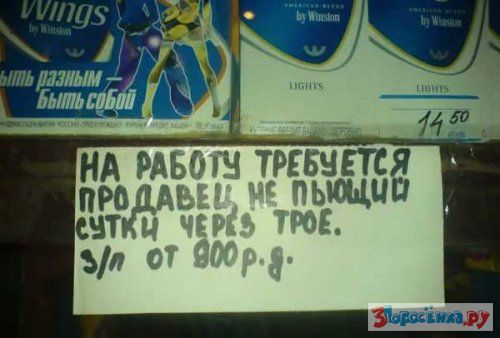 Wings
by Winston
ыть разным —
Быть собой
AMERICAN BLEND
by Winston
LIGHTS
by Winston
LIGHTS
14 50
НА РАБОТУ ТРЕБУЕТСЯ
ПРОДАВЕЦ НЕ ПЬЮЩИЙ
СУТКИ ЧЕРЕЗ ТРОЕ.
З/П ОТ 800 р.д.
3Поросёнка.ру